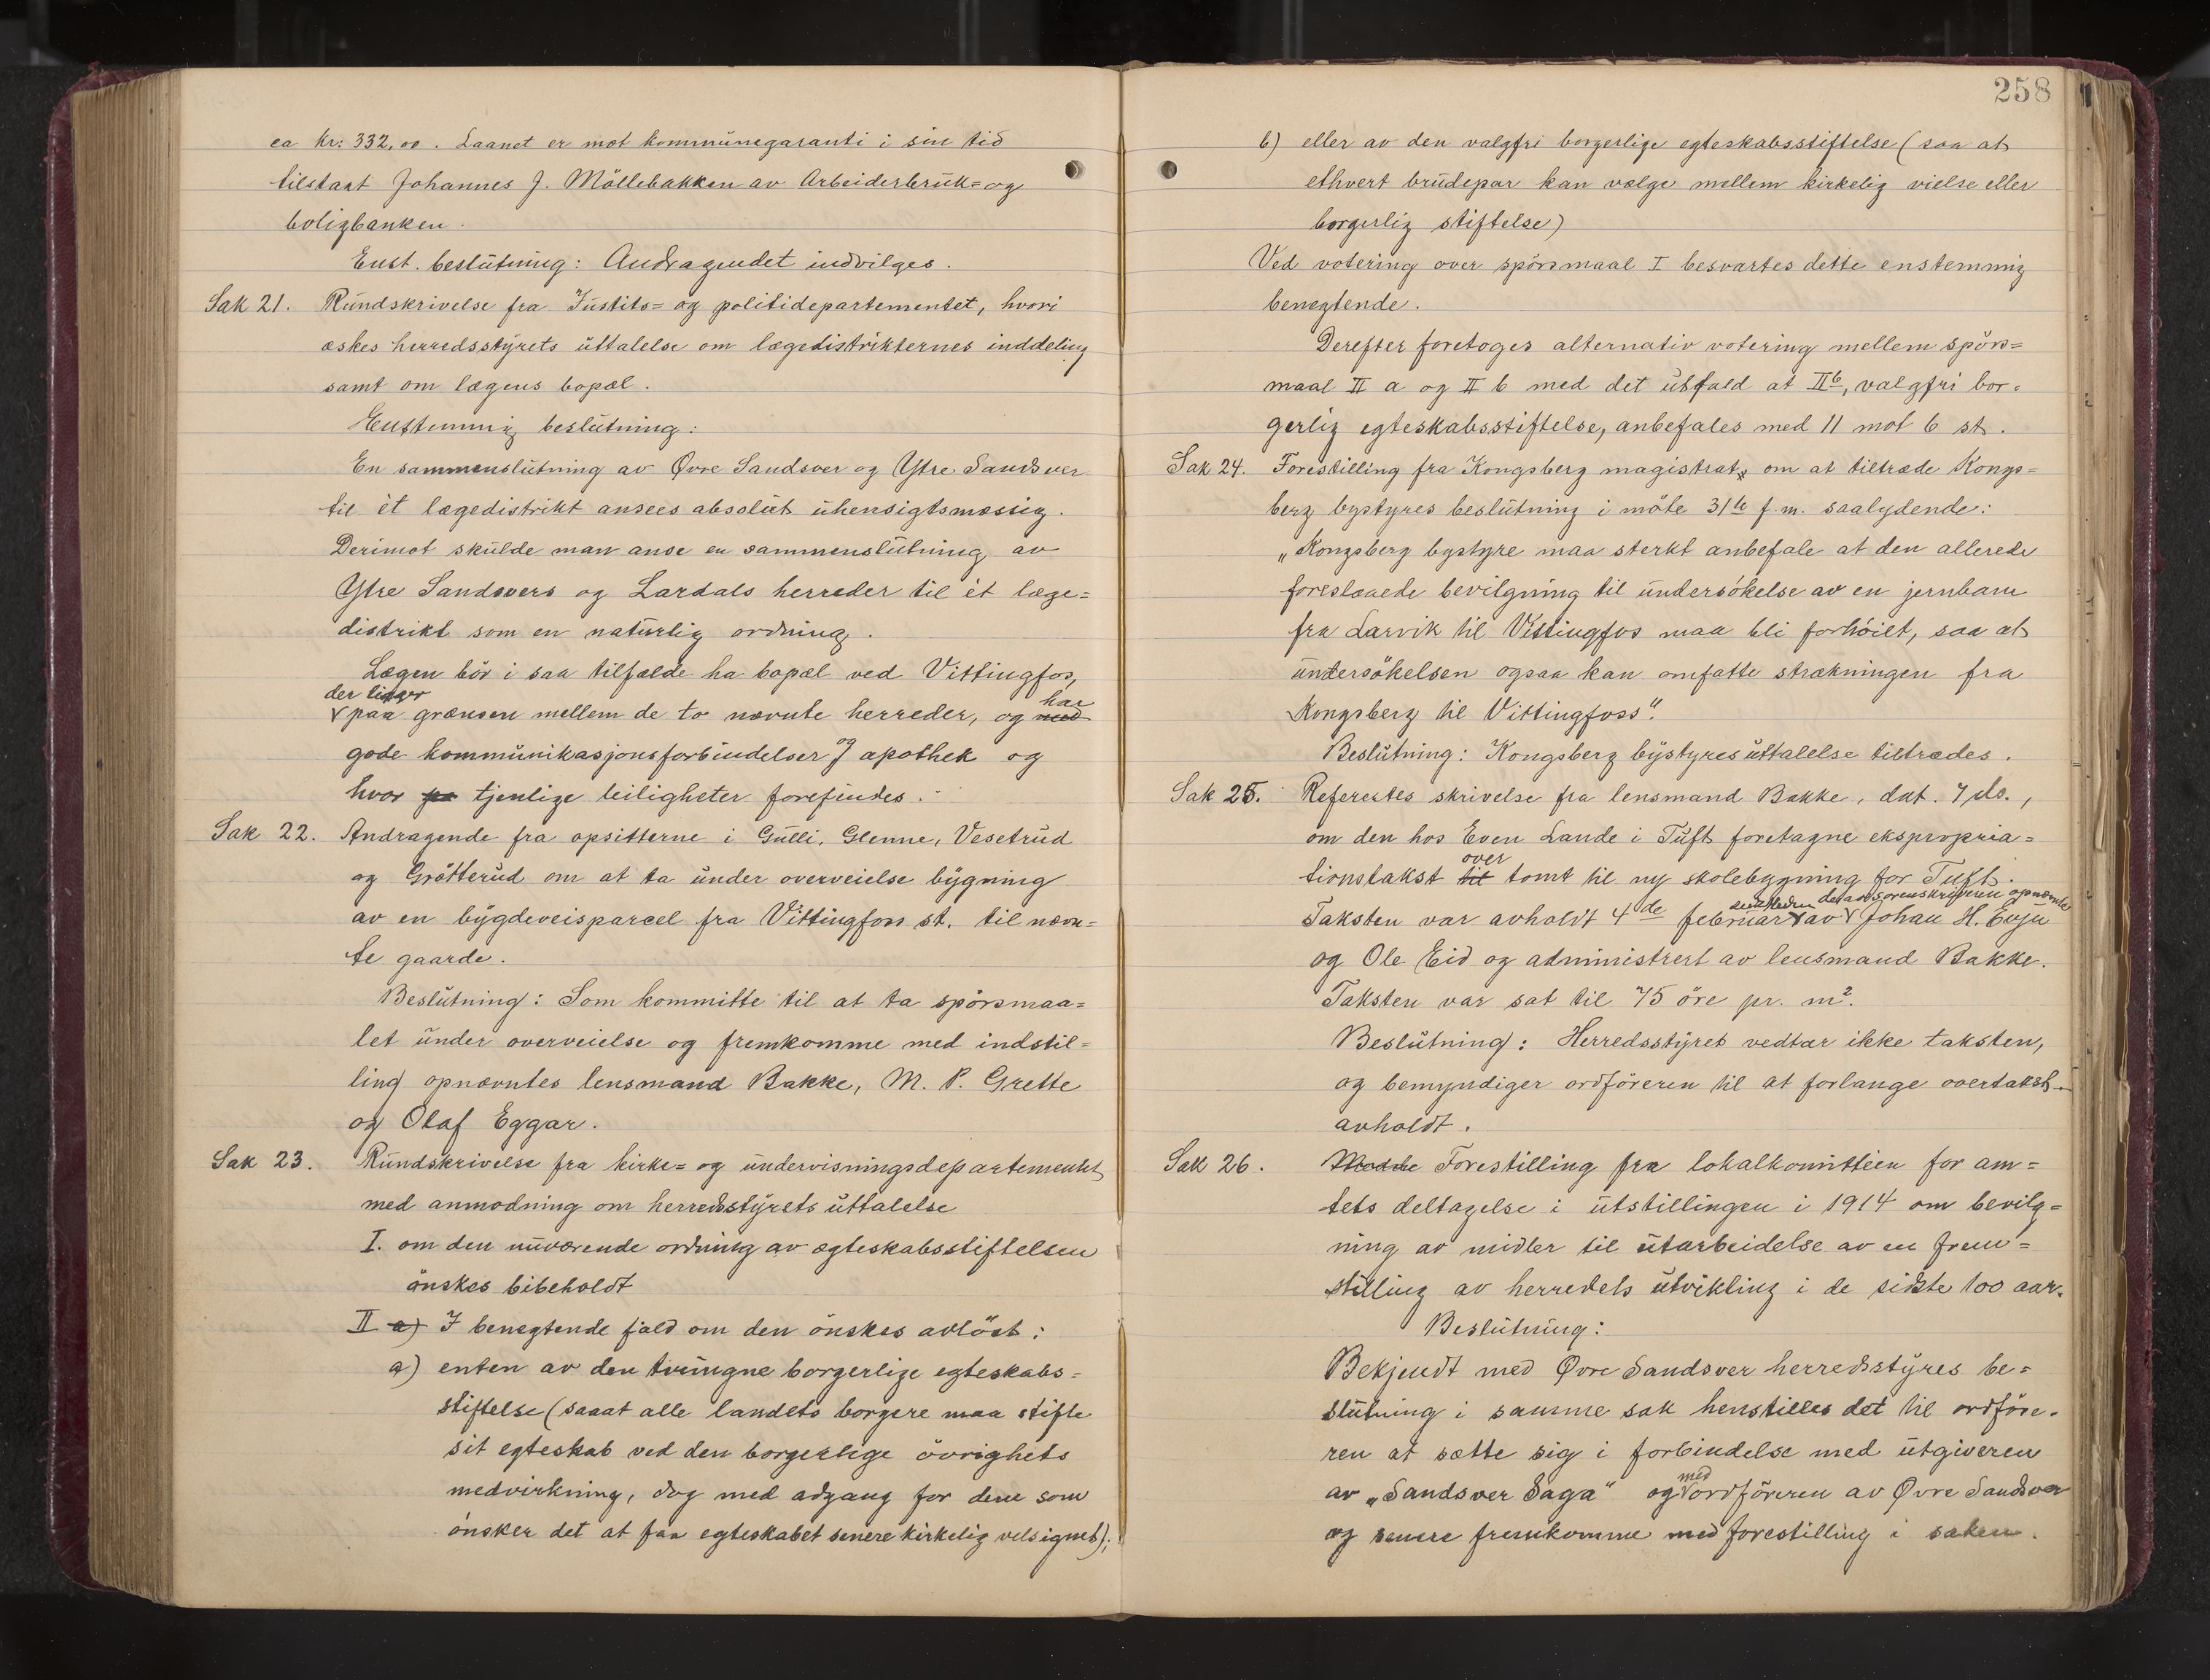 ca kr: 332,00. Laanet er mot kommunegaranti i sin tid
tilstaat Johannes J. Möllebakken av Arbeiderbruk= og
boligbanken.
Enst. beslutning: Andragendet indvilges.
Sak 21. Rundskrivelse fra Justits= og politidepartementet, hvori
æskes herredsstyrets uttalelse om lægedistrikternes inddeling
samt om lægens bopæl.
Enstemmig beslutning:
En sammenslutning av Øvre Sandsver og Ytre Sandsver
til ét lægedistrikt ansees absolut uhensigtsmæssig.
Derimot skulde man anse en sammenslutning av
Ytre Sandsvers og Lardals herreder til ét læge=
distrikt som en naturlig ordning.
Lægen bör i saa tilfælde ha bopæl ved Vittingfos,
der ligger har
paa grænsen mellem de to nævnte herreder, og med
gode kommunikasjonsforbindelser og apothek og
hvor pa tjenlige leiligheter forefindes.
Sak 22. Andragende fra opsitterne i Gulli, Glenne, Vesetrud
og Gröttterud om at ta under overveielse bygning
av en bygdeveisparcel fra Vittingfoss st. til nævn=
te gaarde.
Beslutning: Som kommitte til at ta spörsmaa=
let under overveielse og fremkomme med indstil=
ling opnævntes lensmand Bakke, M. P. Grette
og Olaf Eggar.
Sak 23. Rundskrivelse fra kirke= og undervisningsdepartementet
med anmodning om herredsstyrets uttalelse
I. om den nuværende ordning av egteskabsstiftelsen
önskes bibeholdt
II a) I benegtende fald om den önskes avlöst:
a) enten av den tvungne borgerlige egteskabs=
stiftelse (saaat alle landets borgere maa stifte
sit egteskab ved den borgerlige övrighets
medvirkning, dog med adgang for dem som
önsker det at faa egteskabet senere kirkelig velsignet);
258
b) eller av den valgfri borgerlige egteskabsstiftelse (saa at
ethvert brudepar kan vælge mellem kirkelig vielse eller
borgerlig stiftelse)
Ved votering over spörsmaal I besvartes dette enstemmig
benegtende.
Derefter foretoges alternativ votering mellem spörs=
maal II a og II b med det utfald at II b, valgfri bor=
gerlig egteskabsstiftelse, anbefales med 11 mot 6 st.
Sak 24. Forestilling fra Kongsberg magistrat, om at tiltræde Kongs=
berg bystyres beslutning i möte 31te f.m. saalydende:
„Kongsberg bystyre maa sterkt anbefale at den allerede
foreslaaede bevilgning til undersökelse av en jernbane
fra Larvik til Vittingfos maa bli forhöiet, saa at
undersökelsen ogsaa kan omfatte strækningen fra
Kongsberg til Vittingfoss".
Beslutning: Kongsberg bystyres uttalelse tiltrædes.
Sak 25. Refereretes skrivelse fra lensmand Bakke, dat. 7 ds.,
om den hos Even Lande i Tuft foretagne ekspropria=
over
tionstakst til tomt til ny skolebygning for Tuft.
de av sorenskriveren opnævnte
Taksten var avholdt 4de februar av Johan H. Evju
og Ole Eid og administrert av lensmand Bakke.
Taksten var sat til 75 öre pr. m².
Beslutning: Herredsstyret vedtar ikke taksten,
og bemyndiger ordföreren til at forlange overtakst
avholdt.
Sak 26. Forestilling fra lokalkomitteen for am=
tets deltagelse i utstillingen i 1914 om bevilg=
ning av midler til utarbeidelse av en frem=
stilling av herredets utvikling i de sidste 100 aar.
Beslutning:
Bekjendt med Øvre Sandsver herredsstyres be=
slutning i samme sak henstilles det til ordföre=
ren at sætte sig i forbindelse med utgiveren
med
av „Sandsver Saga" og ordföreren av Øvre Sandsver
og senere fremkomme med forestilling i saken.